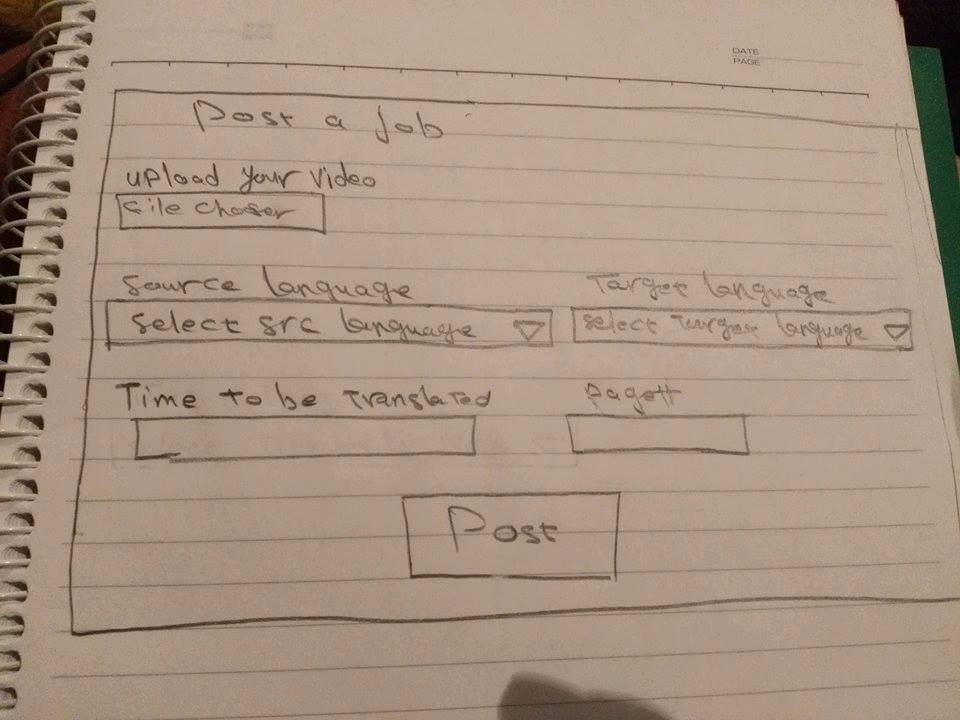 DATE
PAGE
Post a Job
upload your video
file chooser
Source language
Target language
select src language
select Target language
Time to be Translated
Post